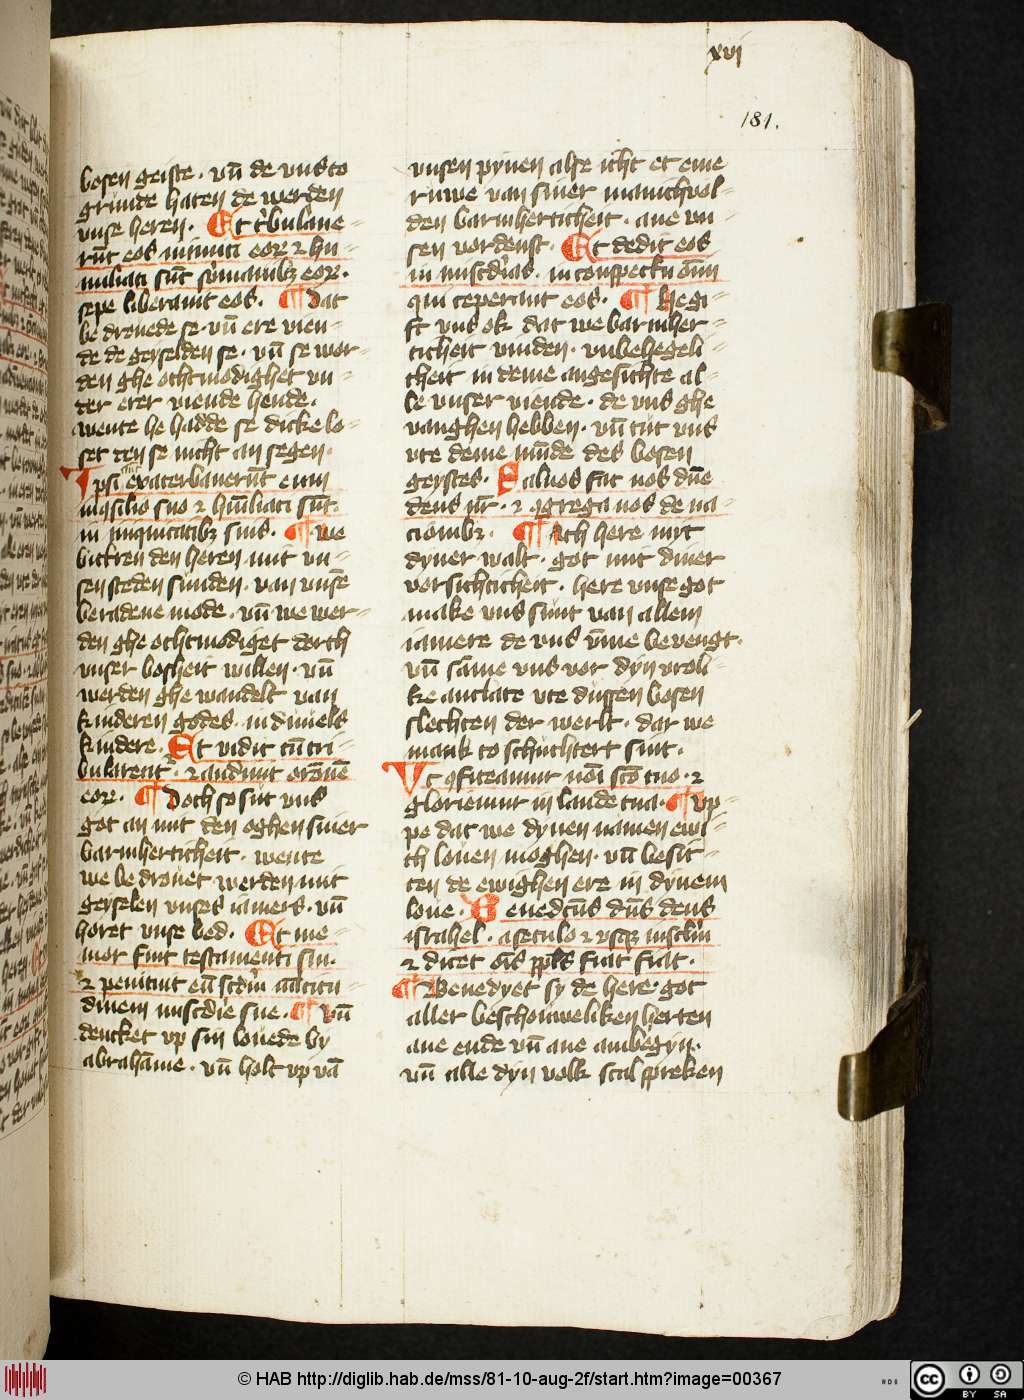 xvj
181.
bosen geiste · vn̄ de vns to
grunde haten de werden
vnse heren · Et t'bulaue-
rūt eos inimici eoꝝ ⁊ hu-
miliati sūt s'manibꝫ eoꝝ ·
sepe liberauit eos · ¶ Dat
be drouede se · vn̄ ere vien-
de de geyselden se · vn̄ se wor-
den ghe othmodighet vn-
ter erer viende hende ·
wente he hadde se dicke lo-
set ten se nicht an segen ·
Ipsi exaterbauerūt eum
in ꝯsilio suo ⁊ humiliati sūt
in iniquitatibꝫ suis · ¶ We
bittren den heren mit vn-
sen steden sunden · van vnsē
beradene mode · vn̄ we wer-
den ghe othmodiget dorch
vnser bosheit willen · vn̄
werden ghe wandelt van
kinderen godes · in duuels
kindere · Et vidit cū tri-
bularent' · ⁊ audiuit orōnē
eoꝝ · ¶ Doch so sut vns
got an mit den oghen siner
barmherticheit · wente
we be drouet werden mit
geyselen vnses iamers · vn̄
horet vnse bed · Et me-
mor fuit testamenti sui ·
⁊ penituit eū scdm̄ mltitu-
dinem miscdie sue · ¶ Vn̄
dencket vp sin louede by
abrahāme · vn̄ holt vp vā
vnsen pynen alse icht et eme
ruwe van siner manichuol-
den barmherticheit · ane vn-
sen vordenst · Et dedit eos
in miscd'ias · in conspectu om̄
qui ceperant eos · ¶ He gi-
ft vns ok dat we barmher-
ticheit vinden · vnbehegeli-
cheit in deme angesichte al-
le vnser viende · de vns ghe
vanghen hebben · vn̄ tut vns
vte deme mūde des bosen
geystes · Saluos fac nos dn̄e
deus nr̄ · ⁊ ꝯgrega nos de na-
cionibꝫ · ¶ Ach here myt
dyner walt · got mit diner
vorsichticheit · here vnse got
make vns sunt van allem
iamere de vns vm̄e bevengt ·
vn̄ sāme vns vor dyn vroli-
ke antlate vte dussen bosen
slechten der werlt · dar we
mank to schuchtert sint ·
Vt ꝯfiteamur nōi sc̄o tuo · ⁊
gloriemur in laude tua · ¶ Vp-
pe dat we dynen namen ewi-
ch louen moghen · vn̄ besit-
ten de ewighen ere in dynem
loue · Benedc̄us dn̄s deus
israhel · a seculo ⁊ vsqꝫ in sclm̄
⁊ dicet om̄s ppls fiat fiat ·
¶ Benedyet sy de here · got
aller beschouweliken herten
ane ende vn̄ ane ambegyn ·
vn̄ alle dyn volk scal spreken
© HAB http://diglib.hab.de/mss/81-10-aug-2f/start.htm?image=00367
cc BY SA